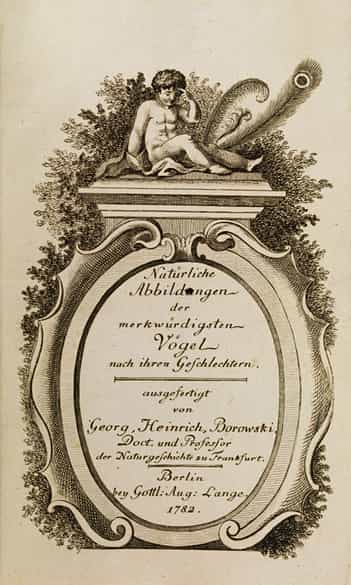 Natürliche
Abbildungen
der
merkwürdigsten
Vögel
nach ihren Geschlechtern.
ausgefertigt
von
Georg, Heinrich, Borowski,
Doct. und Professor
der Naturgeschichte zu Frankfurt.
Berlin
bey Gottl: Aug: Lange
1782.